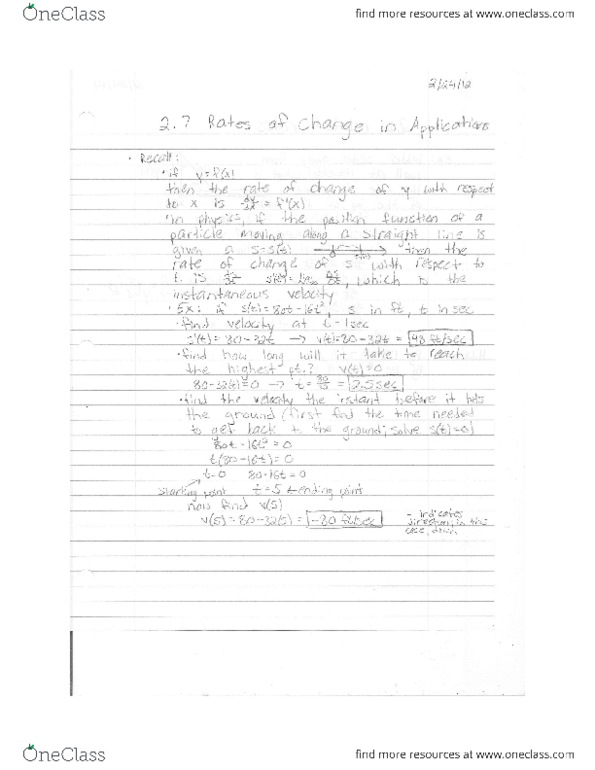 OneClass
find more resources at www.oneclass.com
2/24/12
2.7 Rates of Change in Applications
• Recall:
• if y=f(x)
then the rate of change of y with respect
to x is dy/dx = f'(x)
• in physics, if the position function of a
particle moving along a straight line is
given a s=s(t) then the
rate of change of s with respect to
t is s'(t)= which is the
instantaneous velocity
• Ex: if s(t)=80t-16t², s in ft, t in sec
• find velocity at t=1sec
s'(t)=80-32t → v(t)=80-32t = 48 ft/sec
• find how long will it take to reach
the highest pt.? v(t)=0
80-32(t)=0 → t= = 2.5sec
• find the velocity the instant before it hits
the ground (first find the time needed
to get back to the ground; solve s(t)=0)
80t-16t²=0
t(80-16t)=0
t=0 80-16t=0
starting point t=5 ending point
now find v(5)
v(5)=80-32(5)= -80 ft/sec
- indicates
direction, in this
case, down
OneClass
find more resources at www.oneclass.com